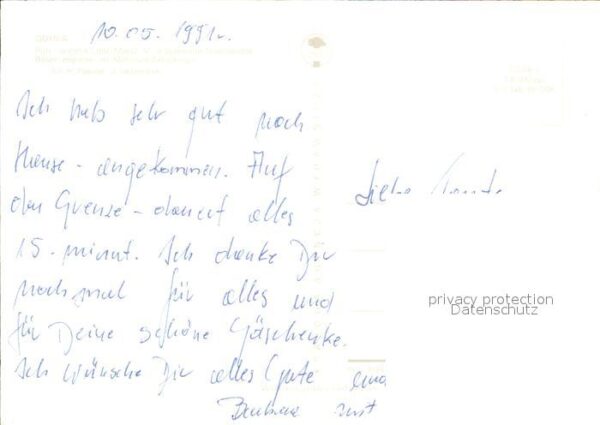 10.05.1991r.
Ich hab sehr gut noch
Hause - angekommen. Auf
den Grenze - dauert alles
15 - minut. Ich danke Dir
noch mal für alles und
für Deine schöne Gäschenke.
Ich wünsche Dir alles Gute und
Liebe
privacy protection
Datenschutz